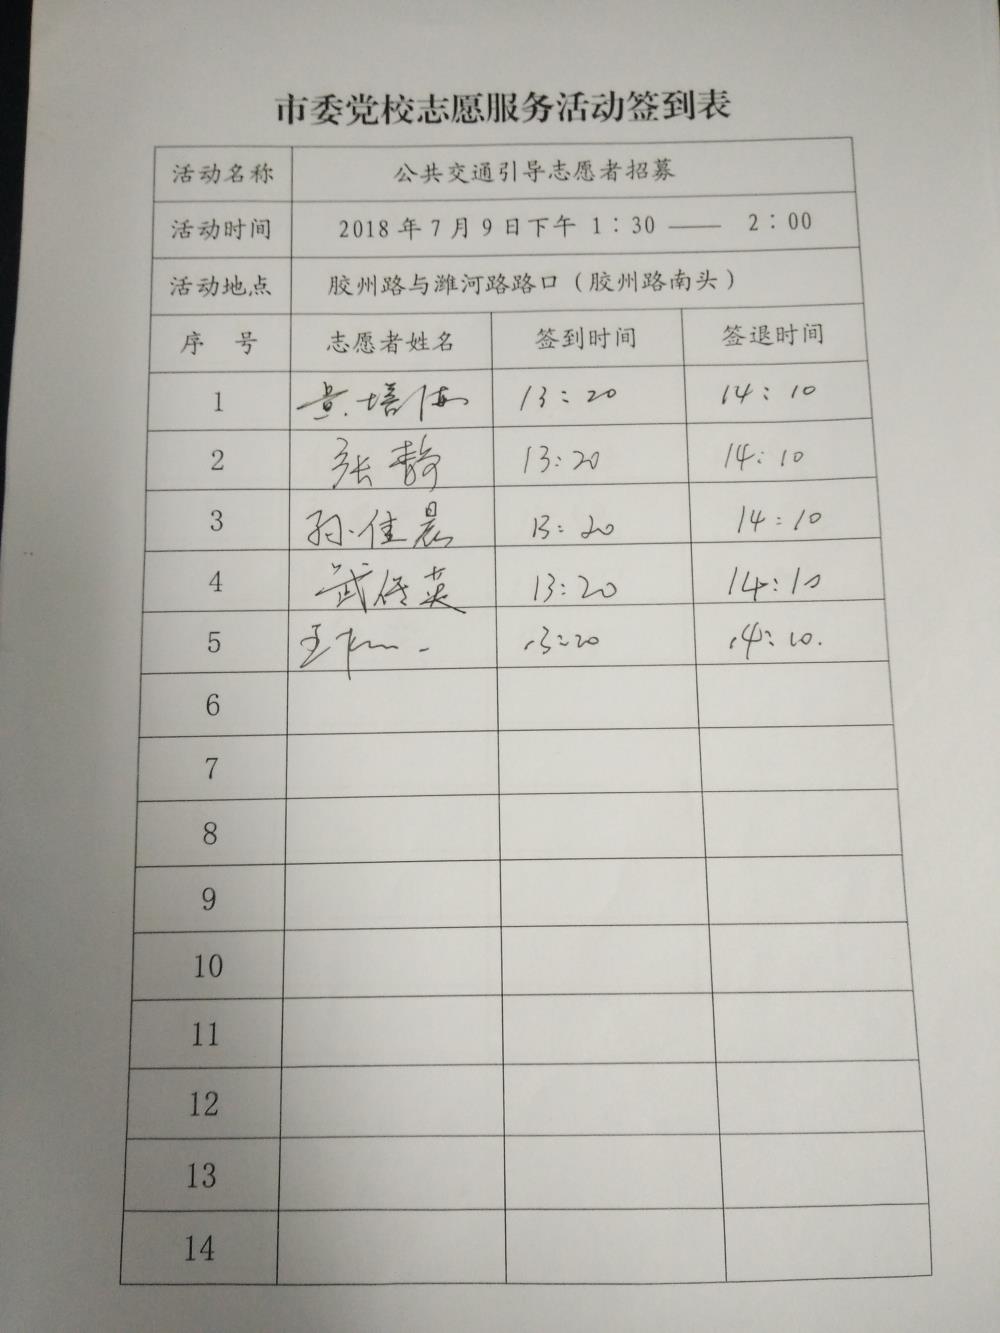 市委党校志愿服务活动签到表
活动名称 公共交通引导志愿者招募
活动时间 2018年7月9日下午 1：30 —— 2：00
活动地点 胶州路与潍河路路口（胶州路南头）
序 号 志愿者姓名 签到时间 签退时间
1 13：20 14：10
2 张静 13：20 14：10
3 孙佳晨 13：20 14：10
4 武 英 13：20 14：10
5 王 13：20 14：10.
6
7
8
9
10
11
12
13
14